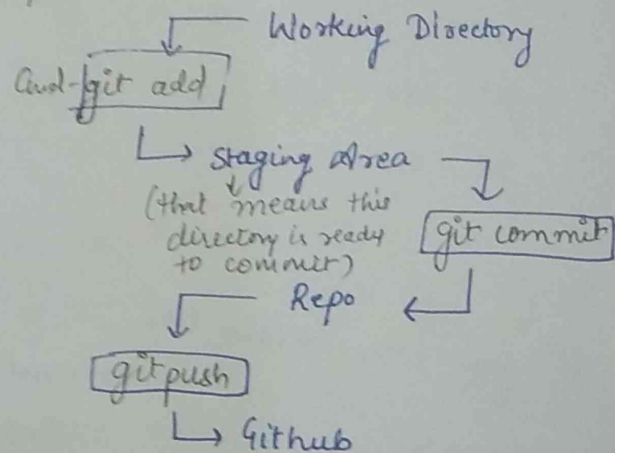 Working Directory
Cmd- git add
Staging Area
(that means this
directory is ready
to commit)
git commit
Repo
git push
Github